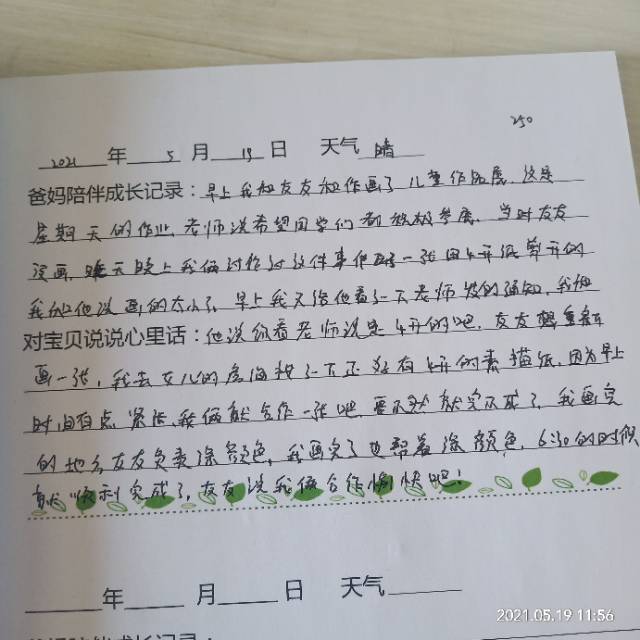 250
2021年 5 月 19 日 天气 晴
爸妈陪伴成长记录：早上我和友友和作画了儿童作品展，这是
星期天的作业，老师说希望同学们都积极参展，当时友友
没画，昨天晚上我俩讨论过这件事他画一张用4开纸剪开的
我说他没画的太小了，早上我又给他看了一下老师发的通知，我和
对宝贝说说心里话：他说你看老师说是4开的吧，友友想重新
画一张，我去女儿的房间找了一下正好有4开的素描纸，因为早上
时间有点紧张，我俩就合作一张吧，要不然就完不成了，我画完
的地方友友负责涂颜色，我画完了也帮着涂颜色，6:30的时候
就顺利完成了，友友说我俩合作愉快吧！
年 月 日 天气
爸妈陪伴成长记录：
2021.05.19 11:56